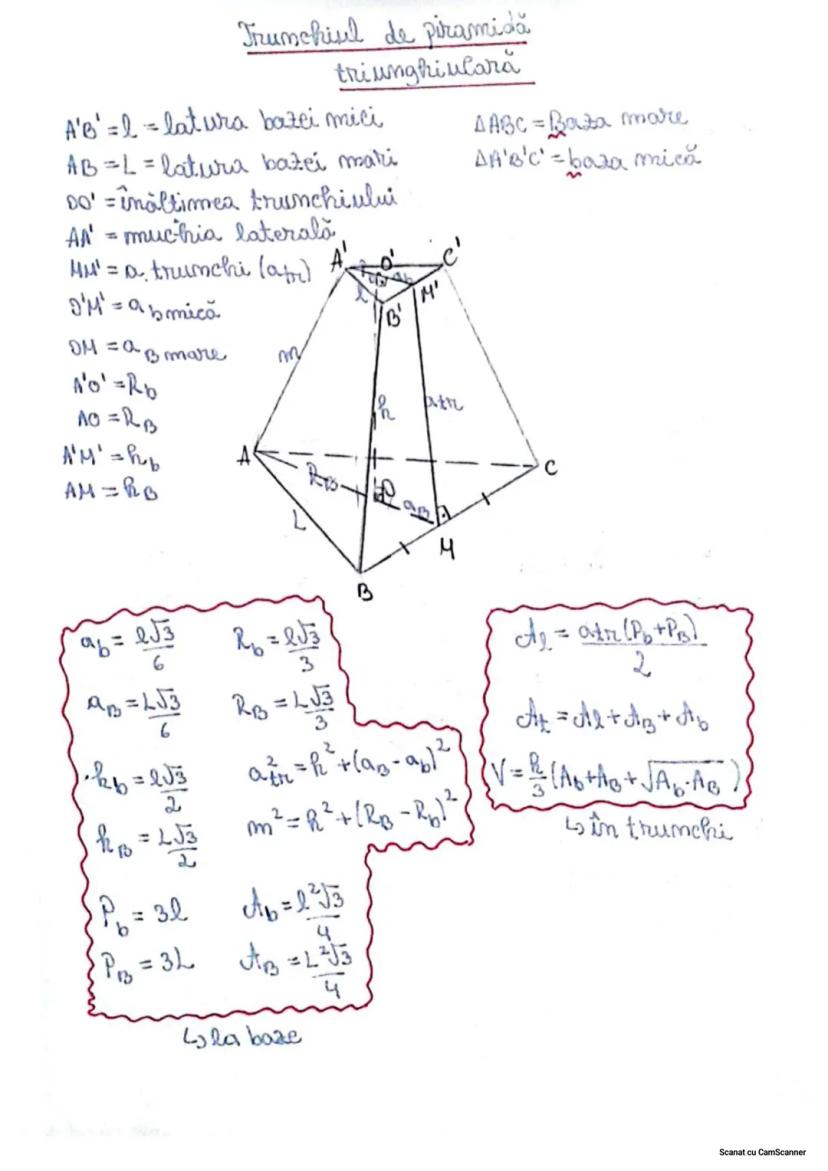 Trunchiul de piramidă
triunghiulară
A'B' = l = latura bazei mici
AB = L = latura bazei mari
OO' = înălțimea trunchiului
AA' = muchia laterală
MM' = a. trunchi (atr)
O'M' = a b mică
OM = a B mare
A'O' = Rb
AO = RB
A'M' = hb
AM = hB
ΔABC = Baza mare
ΔA'B'C' = baza mică
A' O' C'
Rb ab
l M'
B'
m
h atr
A C
RB O
aB
L
M
B
ab = l√3/6 Rb = l√3/3
aB = L√3/6 RB = L√3/3
hb = l√3/2 a²tr = h² + (aB - ab)²
hB = L√3/2 m² = h² + (RB - Rb)²
Pb = 3l Ab = l²√3/4
PB = 3L AB = L²√3/4
↳ la baze
Al = atr(Pb+PB)/2
At = Al + AB + Ab
V = h/3 (Ab + AB + √Ab·AB)
↳ în trunchi
Scanat cu CamScanner